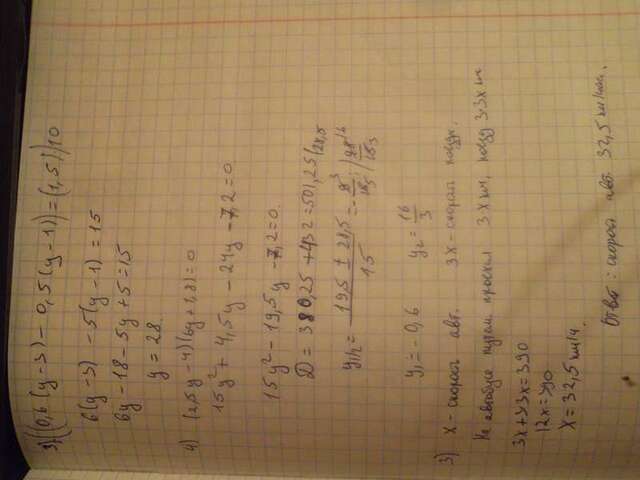 3) (0,6(y-3) - 0,5(y-1)) = (1,5) | 10
6(y-3) - 5(y-1) = 15
6y - 18 - 5y + 5 = 15
y = 28
4) (2,5y-4)(6y+1,8) = 0
15y² + 4,5y - 24y - 7,2 = 0
15y² - 19,5y - 7,2 = 0
D = 380,25 + 432 =
y₁/₂ =
y₁ = -0,6 y₂ = 16/3
3) x - скорость авт. 3x - скорость
На автобусе путем проехал 3x км, 3·3x км
3x + 9x = 390
12x = 390
x = 32,5 км/ч.
Ответ: скорость авт. 32,5 км/час.